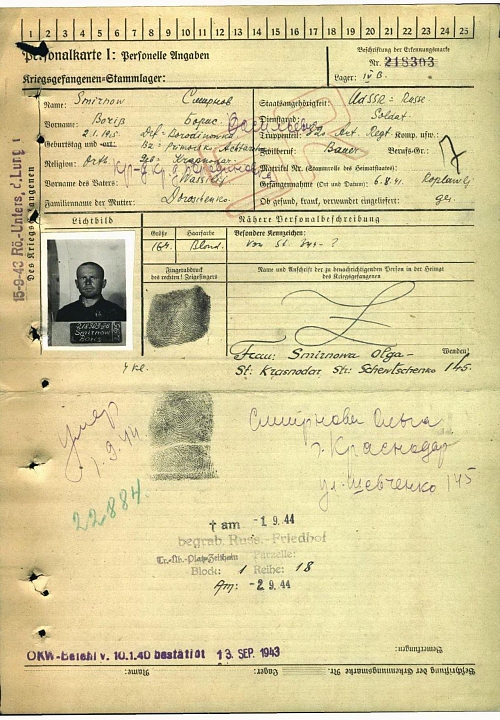 1 2 3 4 5 6 7 8 9 10 11 12 13 14 15 16 17 18 19 20 21 22 23 24 25
Personalkarte I: Personelle Angaben
Kriegsgefangenen-Stammlager:
Beschriftung der Erkennungsmarke
Nr. 218303
Lager: IV B.
Des Kriegsgefangenen
15-9-43 Rö.-Unters. d. Lunge
Name: Smirnow Смирнов
Vorname: Boriß Борис
Geburtstag und -ort:
Religion: Orth.
Vorname des Vaters: Wassilij
Familienname der Mutter: Doroschenko.
Staatsangehörigkeit: UdSSR - Russe
Dienstgrad: Soldat
Truppenteil: Art. Regt Komp. usw.:
Zivilberuf: Bauer Berufs-Gr.:
7
Matrikel Nr. (Stammrolle des Heimatstaates):
Gefangennahme (Ort und Datum): 6.8.41.
Ob gefund, krank, verwundet eingeliefert: ges.
Lichtbild
Nähere Personalbeschreibung
Größe Haarfarbe Besondere Kennzeichen:
164. Blond.
Fingerabdruck
des rechten! Zeigefingers
Name und Anschrift der zu benachrichtigenden Person in der Heimat
des Kriegsgefangenen
218303 IVB
Smirnow
Boris
Frau: Smirnowa Olga-
Wenden!
St: Krasnodar Str: Schewtschenko 145.
умер
1.9.44
22884.
Смирнова Ольга
г. Краснодар
ул. Шевченко 145
† am -1.9.44
begrab. Russ.-Friedhof
Tr.-Üb.-Platz Zeithain Parzelle:
Block: 1 Reihe: 18
Am: -2.9.44
OKW-Befehl v. 10.1.40 bestätigt 13. SEP. 1943
Bemerkungen:
Beschriftung der Erkennungsmarke Nr. Lager: Name: